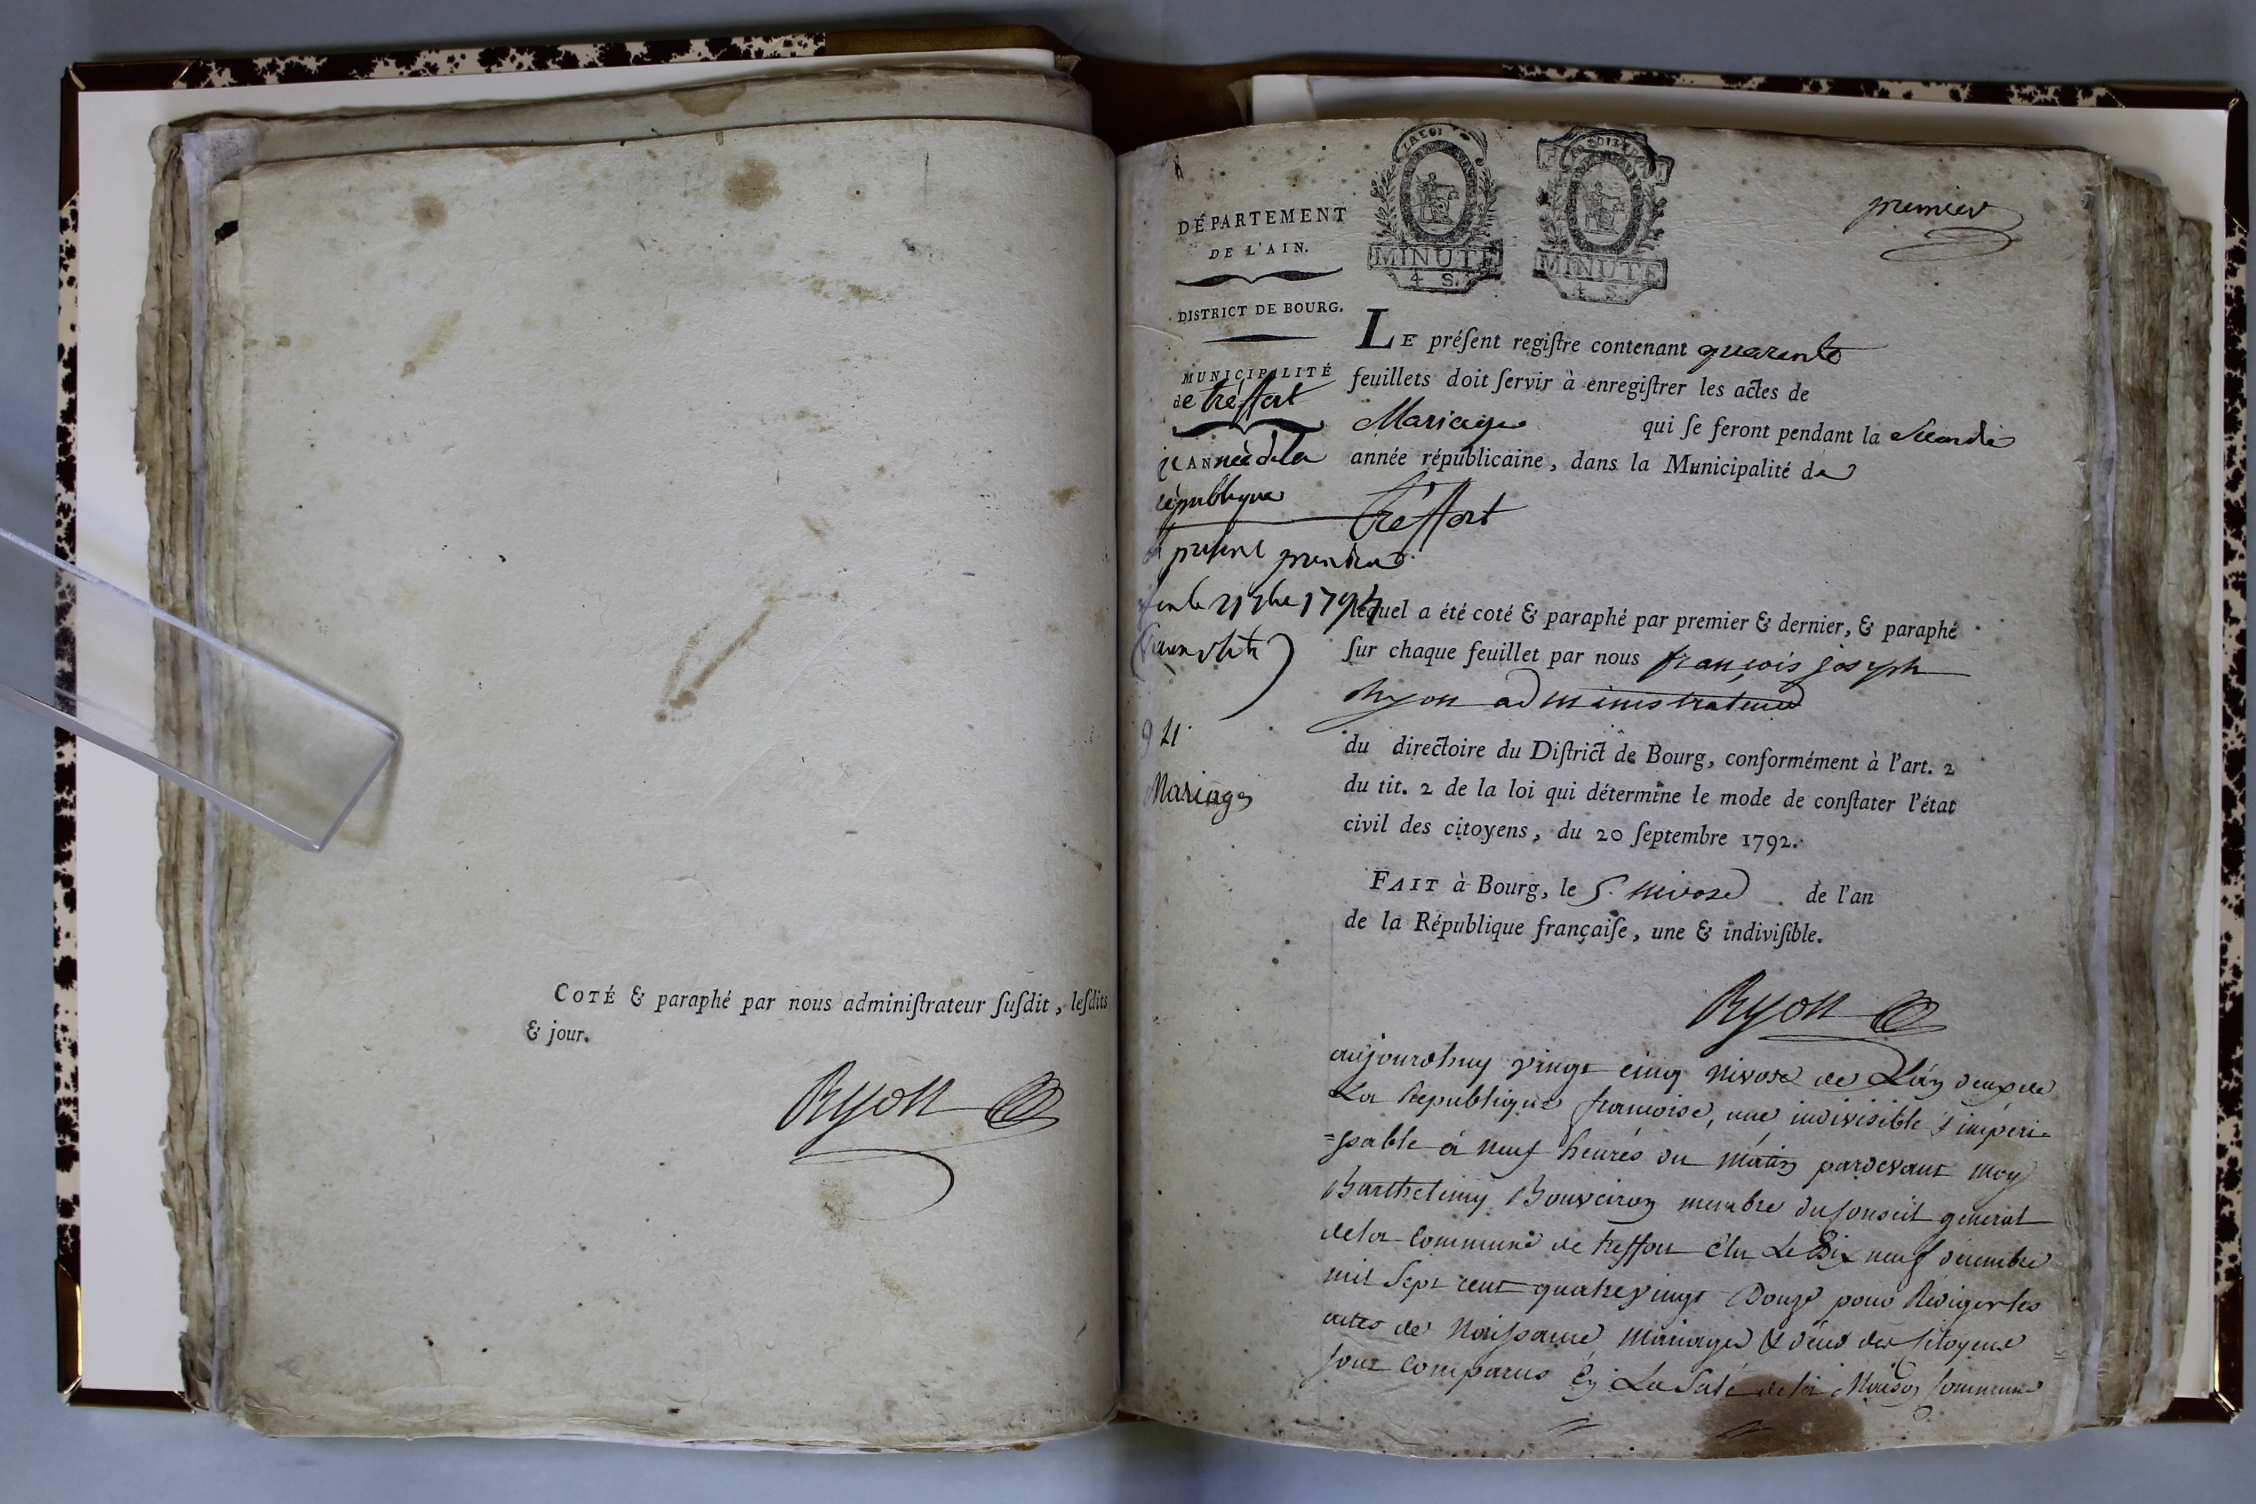 COTÉ & paraphé par nous adminiſtrateur ſuſdit, leſdits
& jour.
Ryon
DÉPARTEMENT
DE L'AIN.
DISTRICT DE BOURG.
MUNICIPALITÉ
de treffort
ANnée de la
république
1794
94
Mariages
MINUTE
4 S.
MINUTE
4 S.
premier
LE préſent regiſtre contenant quarente
feuillets doit ſervir à enregiſtrer les actes de
Mariage qui ſe feront pendant la Seconde
année républicaine, dans la Municipalité de
Tréffort
lequel a été coté & paraphé par premier & dernier, & paraphé
ſur chaque feuillet par nous françois joseph
Ryon administrateur
du directoire du Diſtrict de Bourg, conformément à l'art. 2
du tit. 2 de la loi qui détermine le mode de conſtater l'état
civil des citoyens, du 20 ſeptembre 1792.
FAIT à Bourg, le 5. nivose de l'an
de la République françaiſe, une & indiviſible.
Ryon
aujourdhuy vingt cinq nivose de L'an deux de
La Republique francoise, une indivisible & imperi-
=ssable à neuf heures du matin pardevant moy
Barthelemy Bouveiron membre du Conseil general
de la Commune de treffort élu Le Dix neuf décembre
mil Sept cent quatrevingt Douze pour Rédiger les
actes de Naissance, Mariages & décès des Citoyens
sont comparus En La Sale de la Maison Commune